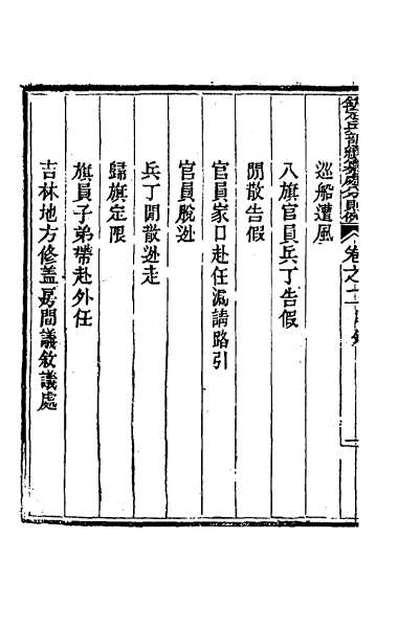 巡船遭風
八旗官員兵丁告假
閒散告假
官員家口赴任漏請路引
官員脫逃
兵丁閒散逃走
歸旗定限
旗員子弟帶赴外任
吉林地方修蓋房間議敘議處